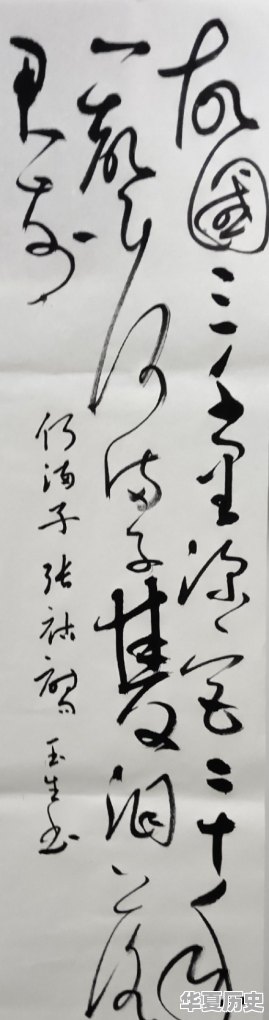 故國三千里深宮二十年
一聲何满子雙泪落
君前
何满子張祜詩 玉生书
华夏历史